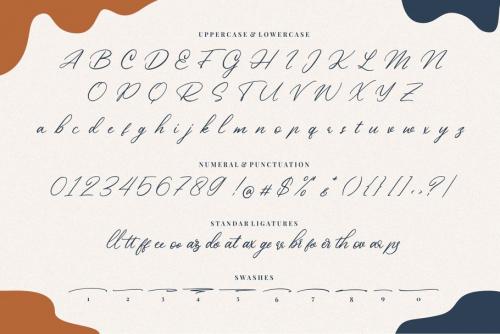 UPPERCASE & LOWERCASE
A B C D E F G H I J K L M N
O P Q R S T U V W X Y Z
a b c d e f g h i j k l m n o p q r s t u v w x y z
NUMERAL & PUNCTUATION
0123456789 !@#$%*&*(){}[].,?/
STANDAR LIGATURES
ll tt ff ee oo az do at ax ge us br fo er th ov as ps
SWASHES
1 2 3 4 5 6 7 8 9 0